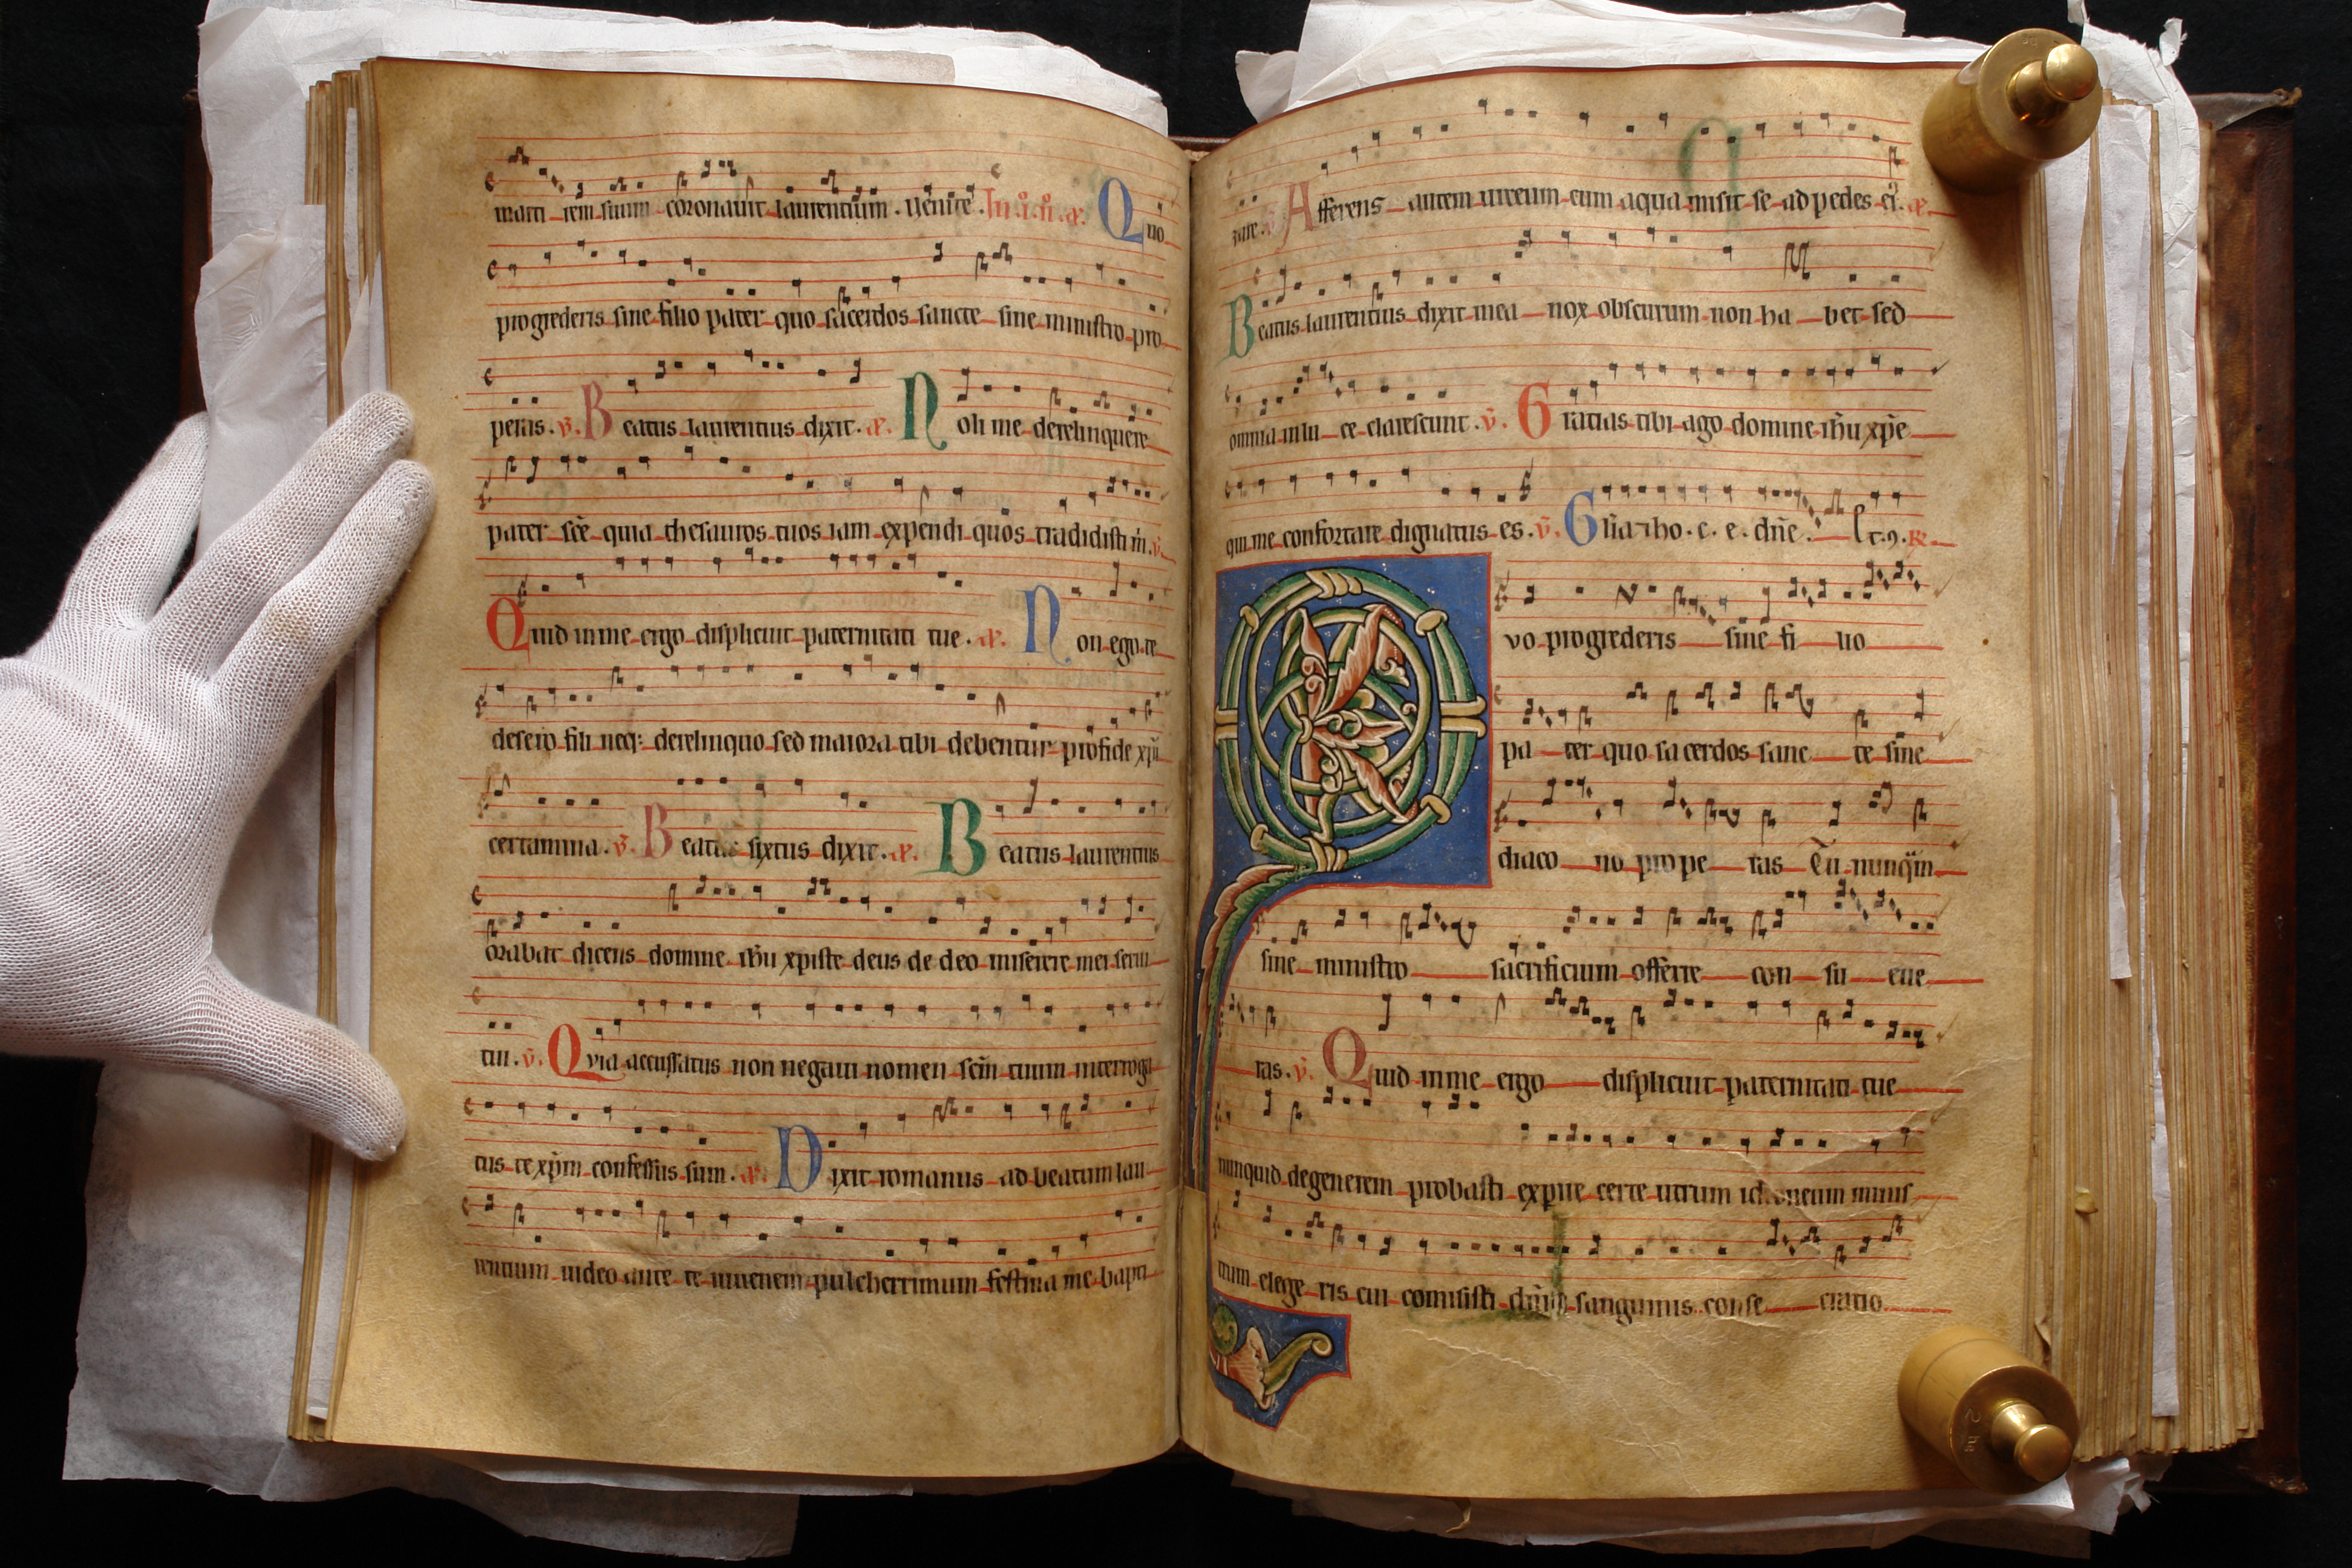 mari rem suum coronauit laurentium. Uenite. In .i. ii. a. Quo
progrederis sine filio pater quo sacerdos sancte sine ministro pro
peras. v. Beatus laurentius dixit. a. Noli me derelinquere
pater sc̄e quia thesauros tuos iam expendi quos tradidisti m̄. v.
Quid in me ergo displicuit paternitati tue. a. Non ego te
desero fili neq; derelinquo sed maiora tibi debentur pro fide xp̄i
certamina. v. Beatus sixtus dixit. a. Beatus laurentius
orabat dicens domine ih̄u xpiste deus de deo miserere mei serui
tui. v. Qvia accussatus non negaui nomen sc̄m tuum interroga
tus te xp̄m confessus sum. a. Dixit romanus ad beatum lau
rentium uideo ante te iuuenem pulcherrimum festina me bapti
zare. v. Afferens autem urceum cum aqua misit se ad pedes ei. a.
Beatus laurentius dixit mea nox obscurum non ha bet sed
omnia in lu ce clarescunt. v. Gratias tibi ago domine ih̄u xp̄e
qui me confortare dignatus es. v. Gl̄ia tibo. e. e. dn̄e. R.
Qvo progrederis sine fi lio
pa ter quo sa cerdos sanc te sine
diaco no prope ras Tu nunq̄m
sine ministro sacrificium offerre con su eue
ras. v. Quid in me ergo displicuit paternitati tue
nunquid degenerem probasti expire certe utrum idoneum minis
trum elege ris cui comisisti dn̄ici sanguinis conse cratio